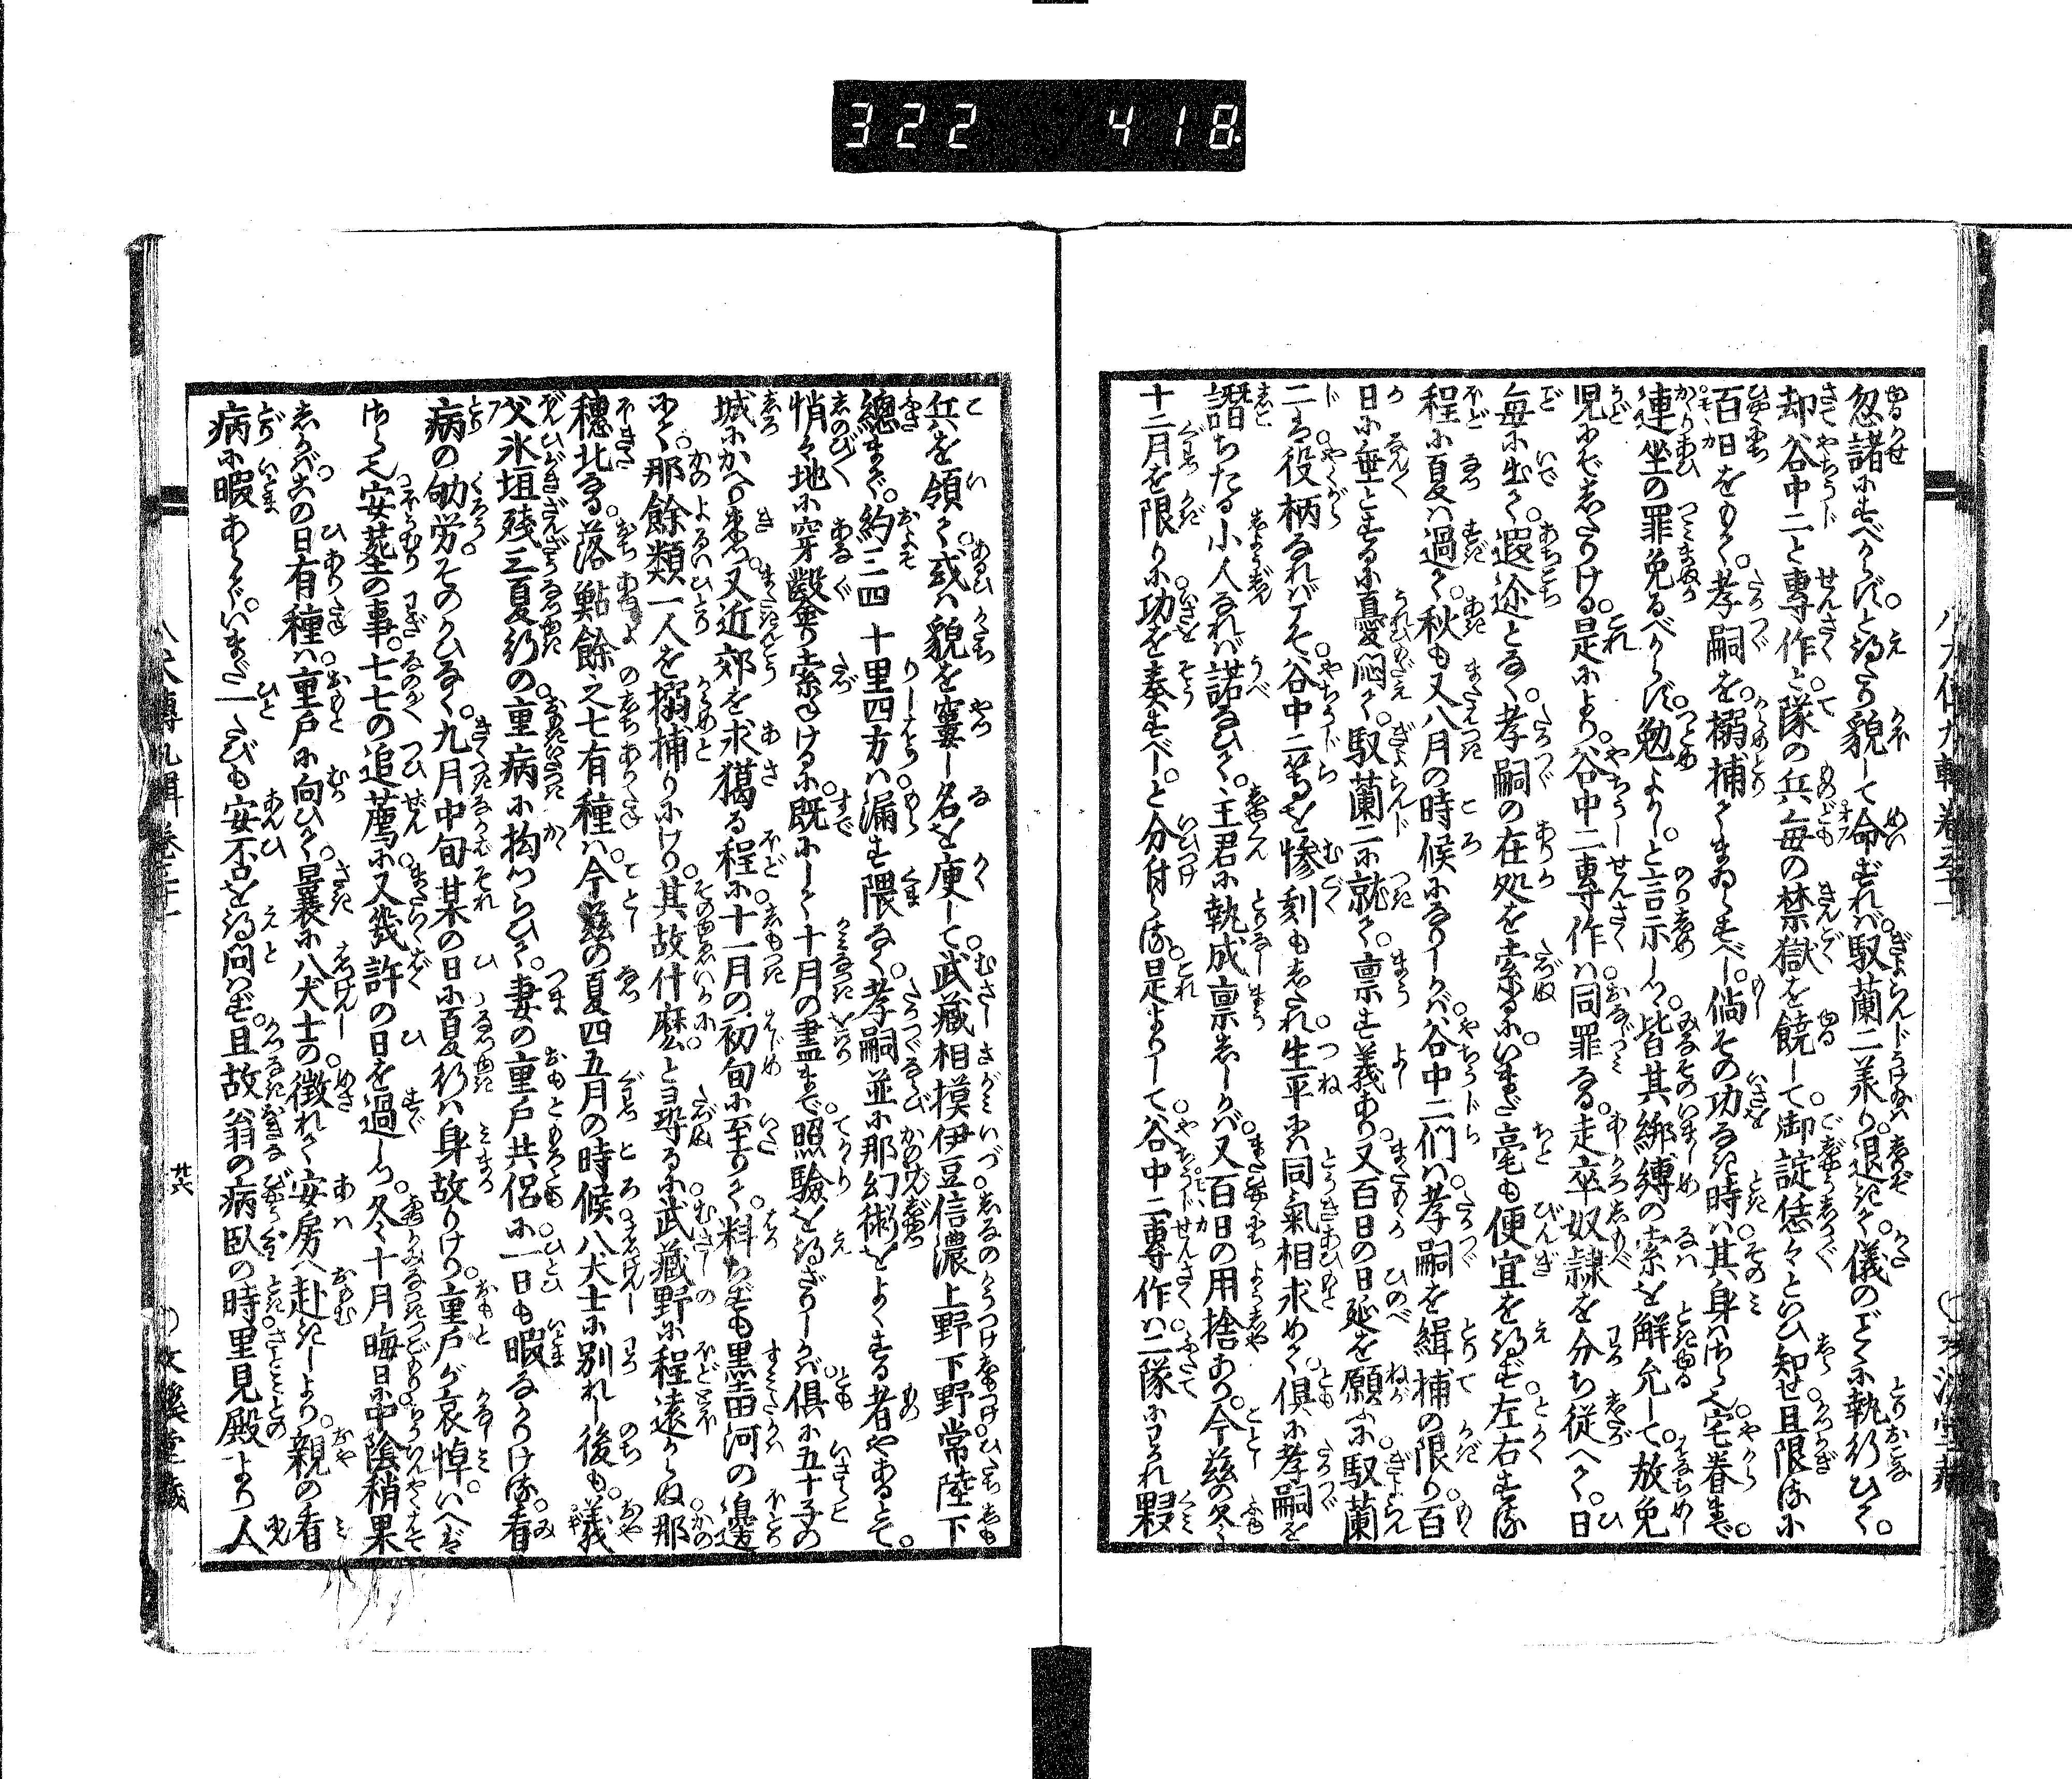 322 418
忽諸にすべからずと得たり貌して命ずれば馭蘭二美り退きて儀のごとくに執行ひて
却谷中二と専作と隊の兵毎の禁獄を饒して御諚恁々といひ知せ且限るに
百日をもて孝嗣を搦捕てまゐらすべし倘その功なき時は其身はさら也宅眷まで
連坐の罪免るべからず勉よかしと言示しつ皆其綁縛の索を解允して放免
児にぞしたりける是により谷中二専作は同罪なる走卒奴隷を分ち従へて日
毎に出て遐迩となく孝嗣の在処を索るにいまだ毫も便宜を得ず左右する
程に夏は過て秋も又八月の時候になりしかば谷中二們は孝嗣を緝捕の限り百
日に垂とするに憂悶て馭蘭二に就て稟す義あり又百日の日延を願ふに馭蘭
二は役柄なればにや谷中二等を惨刻もしたれ生平には同氣相求めて倶に孝嗣を
譖ちたる小人なれば諾なひて主君に執成稟ししかば又百日の用捨あり今茲の冬
十二月を限りに功を奏すべしと分付らる是よりして谷中二専作は二隊にわかれ夥
兵を領て或は貌を窶し名を更して武蔵相摸伊豆信濃上野下野常陸下
總まで約三四十里四方は漏す隈なく孝嗣並に那幻術をよくする者やあるとて
悄々地に穿鑿り索ねけるに既にして十月の盡まで照驗を得ざりしかば倶に五十子の
城にかへり来つ又近郊を求獵る程に十一月の初旬に至りて料らずも黒田河の邊
にて那餘類一人を搦捕りにけり其故什麼とヨ尋るに武藏野に程遠からぬ那
穗北なる落鮎餘之七有種は今茲の夏四五月の時候八犬士に別れし後も義
父氷垣殘三夏行の重病に拘つらひて妻の重戸共侶に一日も暇なかりける看
病の劬労そのかひなく九月中旬某の日に夏行は身故りけり重戸が哀悼いへば
さら也安葬の事七七の追薦に又幾許の日を過しつ冬々十月晦日に中陰稍果
しかば一の日有種は重戸に向ひて曩に八犬士の徴れて安房へ赴きしより親の看
病に暇あらでいまだ一たびも安否を得問はず且故翁の病臥の時里見殿より人
廿六